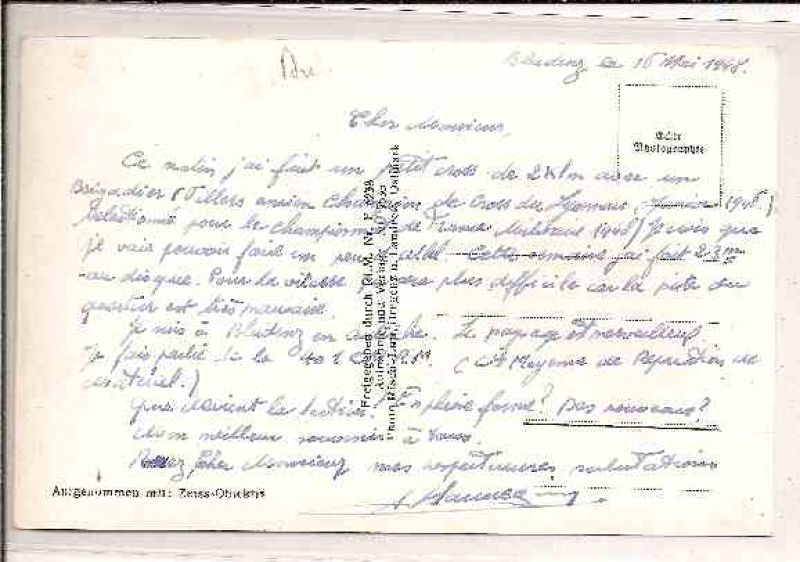 Bludenz le 16 Mai 1948.
Cher Monsieur,
Echte
Photographie
Ce matin j'ai fait un petit cross de 2 km avec un
Brigadier ancien Champion de Cross du Lyonnais, 1946).
Sélectionné pour le championnat de France Militaire 1946) Je crois que
je vais pouvoir faire un peu Cette semaine j'ai fait 23m
au disque. Pour la vitesse plus difficile car la piste du
quartier est très mauvaise.
Je suis à Bludenz en Autriche. Le paysage est merveilleux
Je fais partie de la (Cie Moyenne de Réparation de
matériel.)
Que devient la section. En pleine forme? Des nouveaux?
Mon meilleur souvenir à tous.
Recevez, Cher Monsieur mes respectueuses salutations
Freigegeben durch R.L.M. Nr.
Aufnahme und Verlag
Photo Risch-Lau, Bregenz u. Landeck, Ostmark
Aufgenommen mit: Zeiss-Objektiv